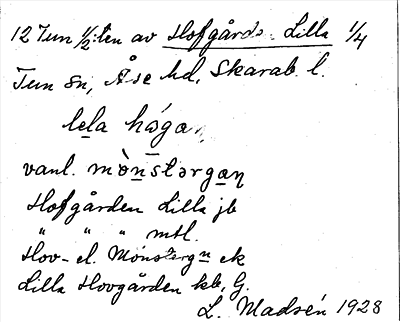 12 Tun 1/2:ten av Hofgårds. Lilla 1/4
Tun sn, Åse hd, Skarab. l.
lela hågan
vanl. mònstərgan
Hofgården Lilla jb
" " " mtl.
Hov- el. Mönsterg n ek
Lilla Hovgården kb, G.
L. Madsén 1928